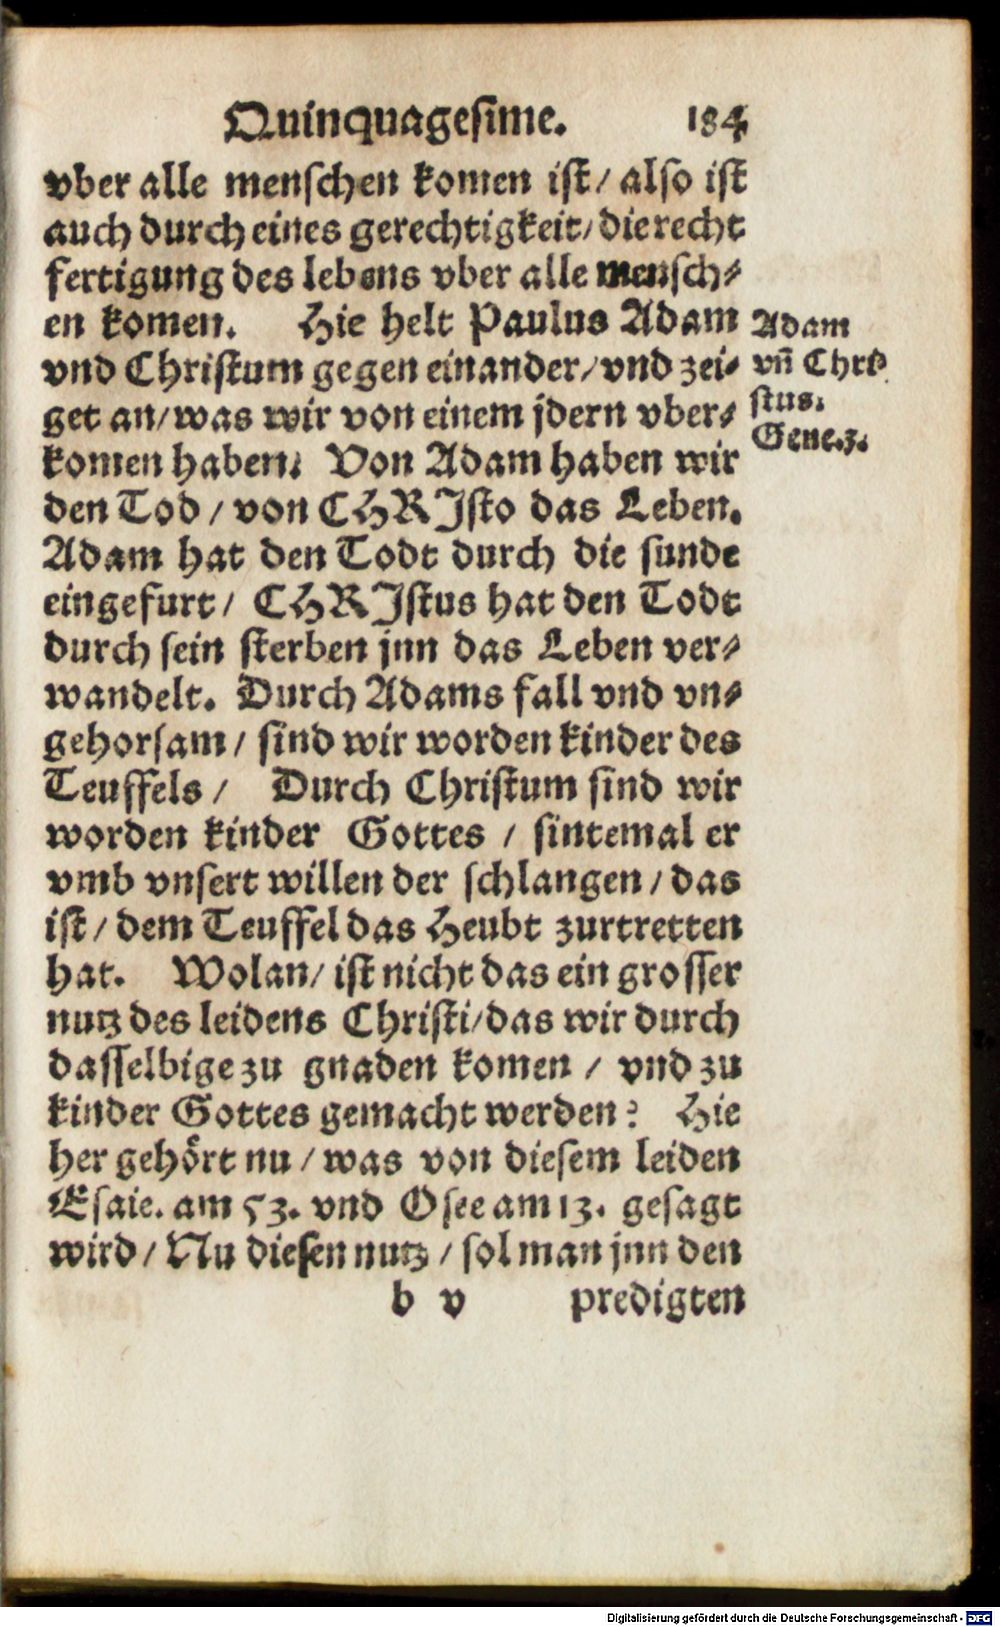 Quinquagesime. 184
vber alle menschen komen ist/ also ist
auch durch eines gerechtigkeit/ die recht
fertigung des lebens vber alle mensch⸗
en komen. Hie helt Paulus Adam
vnd Christum gegen einander/ vnd zei⸗
get an/ was wir von einem jdern vber⸗
komen haben. Von Adam haben wir
den Tod/ von CHRJsto das Leben.
Adam hat den Todt durch die sunde
eingefurt/ CHRJstus hat den Todt
durch sein sterben jnn das Leben ver⸗
wandelt. Durch Adams fall vnd vn⸗
gehorsam/ sind wir worden kinder des
Teuffels/ Durch Christum sind wir
worden kinder Gottes/ sintemal er
vmb vnsert willen der schlangen/ das
ist/ dem Teuffel das Heubt zurtretten
hat. Wolan/ ist nicht das ein grosser
nutz des leidens Christi/ das wir durch
dasselbige zu gnaden komen/ vnd zu
kinder Gottes gemacht werden? Hie
her gehört nu/ was von diesem leiden
Esaie. am 53. vnd Osee am 13. gesagt
wird/ Nu diesen nutz/ sol man jnn den
b v predigten
Adam
vñ Chri
stus.
Gene.3.
Digitalisierung gefördert durch die Deutsche Forschungsgemeinschaft - DFG